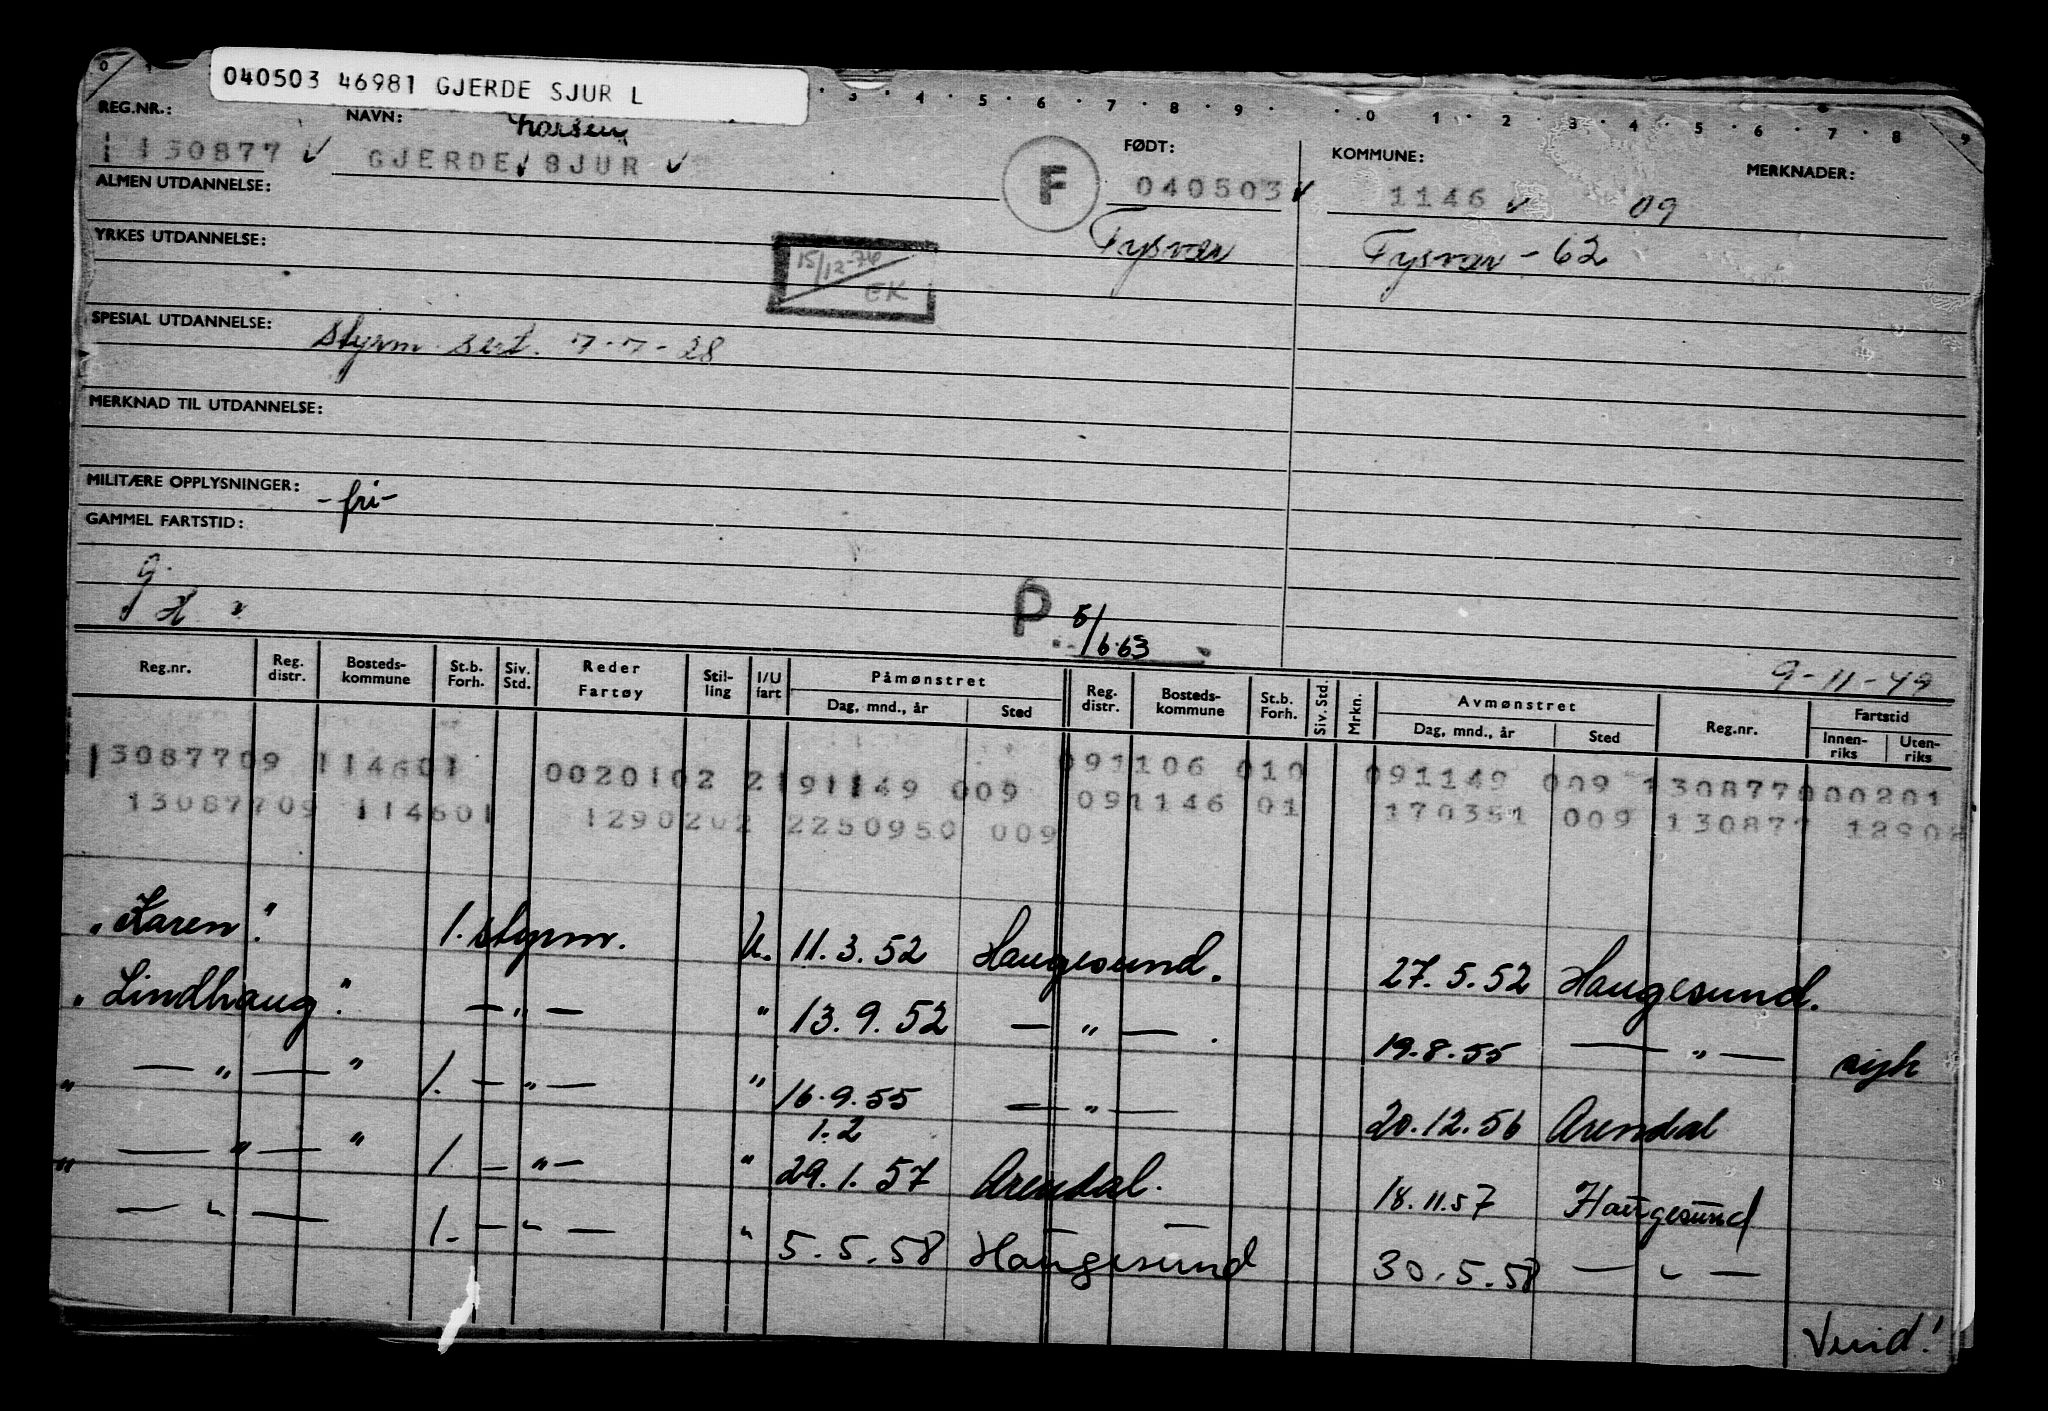 040503 46981 GJERDE SJUR L
REG.NR.: NAVN: Larsen FØDT: KOMMUNE: MERKNADER:
130877 GJERDE, SJUR F 040503 1146 09
ALMEN UTDANNELSE:
Tysvær Tysvær - 62
YRKES UTDANNELSE:
15/12-76
EK
SPESIAL UTDANNELSE: Styrm sert. 7-7-28
MERKNAD TIL UTDANNELSE:
MILITÆRE OPPLYSNINGER: -fri-
GAMMEL FARTSTID:
P 5/6.63
9-11-49
Reg.nr. Reg. distr. Bosteds-kommune St.b. Forh. Siv. Std. Reder Fartøy Stil-ling I/U fart Påmønstret Dag, mnd., år Sted Reg. distr. Bosteds-kommune St.b. Forh. Siv. Std. Mrkn. Avmønstret Dag, mnd., år Sted Reg.nr. Fartstid Innen-riks Uten-riks
13087709 114601 0020102 2191149 009 091106 010 091149 009 130877000201
13087709 114601 1290202 2250950 009 091146 01 170351 009 130877 12902
"Karen". 1. styrm. U. 11.3.52 Haugesund. 27.5.52 Haugesund.
"Lindhaug". — " — " 13.9.52 — " — . 19.8.55 — " — sjk
" — " — " 1. — " — " 16.9.55 — " — 20.12.56 Arendal
1.2
" — " — " 1. — " — " 29.1.57 Arendal. 18.11.57 Haugesund
— " — 1. — " — " 5.5.58 Haugesund 30.5.58 — " —
Vend!